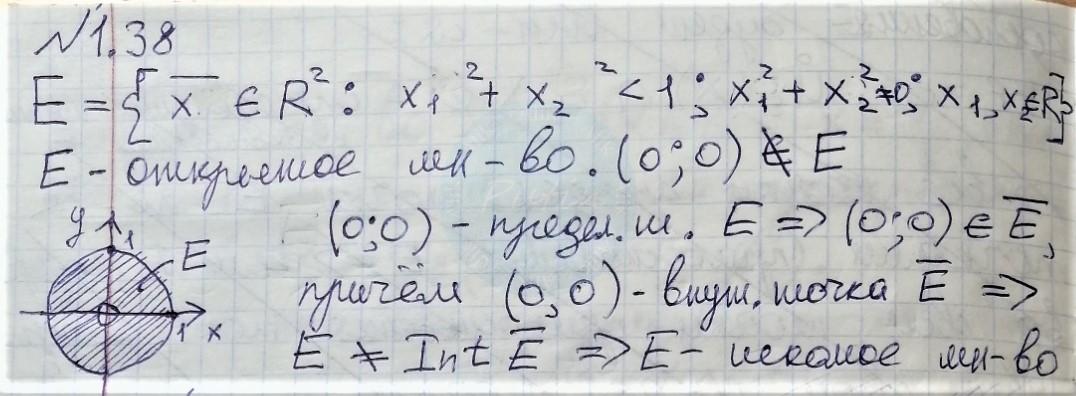 №1.38
E = {[x̄ ∈ R²: x₁² + x₂² < 1; x₁² + x₂² ≠ 0; x₁, x₂ ∈ R]}
E - открытое мн-во. (0;0) ∉ E
(0;0) - предел. т. E => (0;0) ∈ Ē,
причём (0,0) - внут. точка Ē =>
E ≠ Int Ē => E - искомое мн-во
y 1 E
1 x